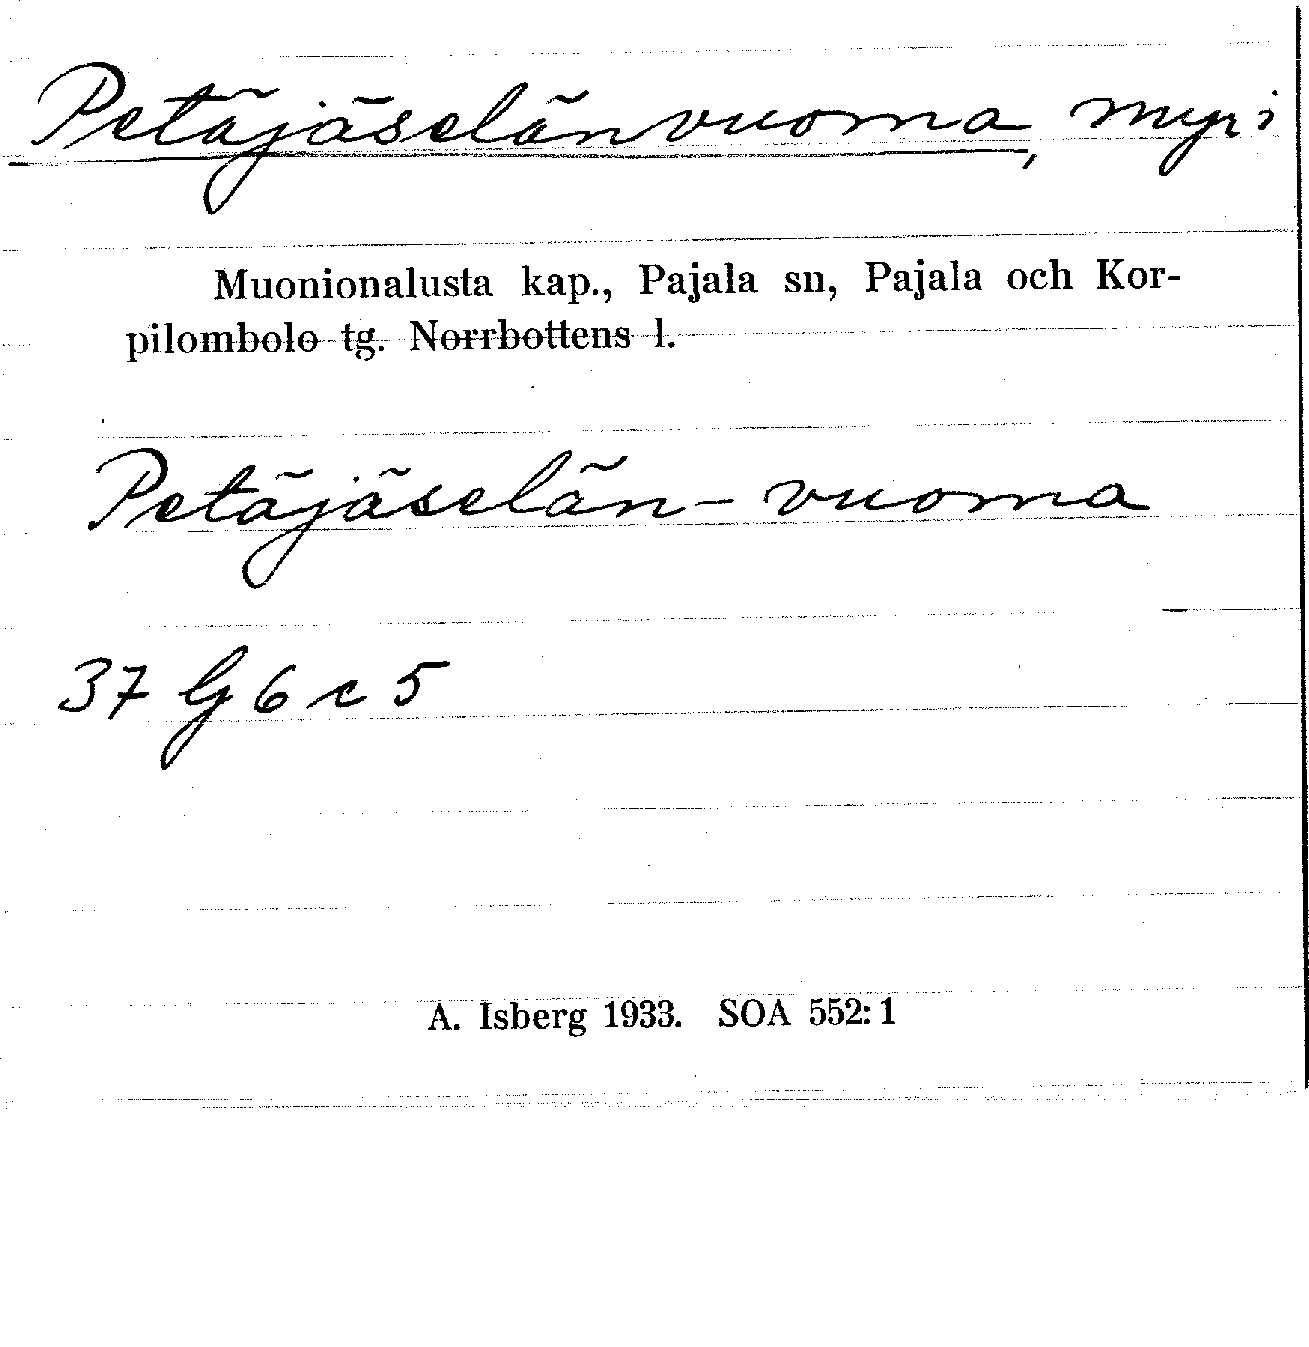 Petäjäselänvuoma, myr i
Muonionalusta kap., Pajala sn, Pajala och Kor-
pilombolo tg. Norrbottens l.
Petäjäselän-vuoma
37 G 6 c 5
A. Isberg 1933. SOA 552:1